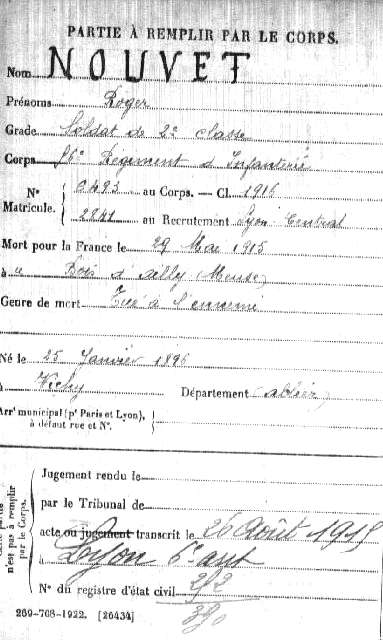 PARTIE À REMPLIR PAR LE CORPS.
Nom NOUVET
Prénoms Roger
Grade Soldat de 2e classe
Corps 56e Régiment d'Infanterie
N° Matricule. { 8493 au Corps. — Cl. 1916
2241 au Recrutement Lyon Central
Mort pour la France le 29 Mai 1915
à u Bois d'Ailly (Meuse)
Genre de mort Tué à l'ennemi
Né le 25 Janvier 1896
à Vichy Département (allier)
Arrt municipal (pr Paris et Lyon),
à défaut rue et N°.
Cette partie n'est pas à remplir par le Corps.
Jugement rendu le
par le Tribunal de
acte ou jugement transcrit le 26 Août 1915
à Lyon 6e arrt
N° du registre d'état civil 292
390
269-708-1922. [26434]